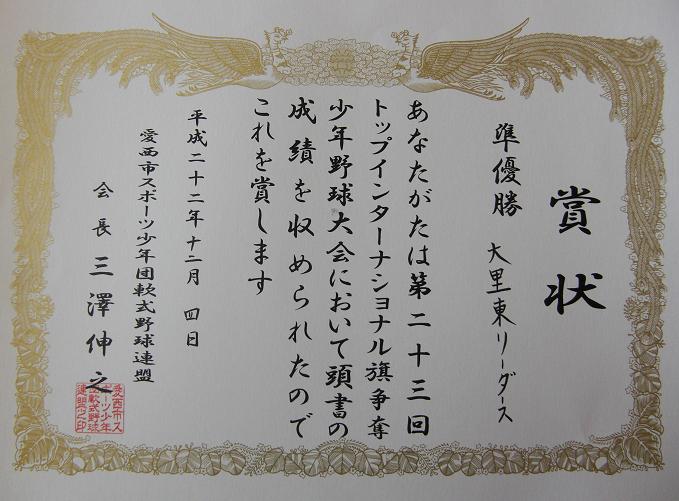 賞状
準優勝 大里東リーダース
あなたがたは第二十三回
トップインターナショナル旗争奪
少年野球大会において頭書の
成績を収められたので
これを賞します
平成二十二年十二月 四日
愛西市スポーツ少年団軟式野球連盟
会長 三澤伸之
愛西市ス
ポーツ少年
団軟式野球
連盟之印